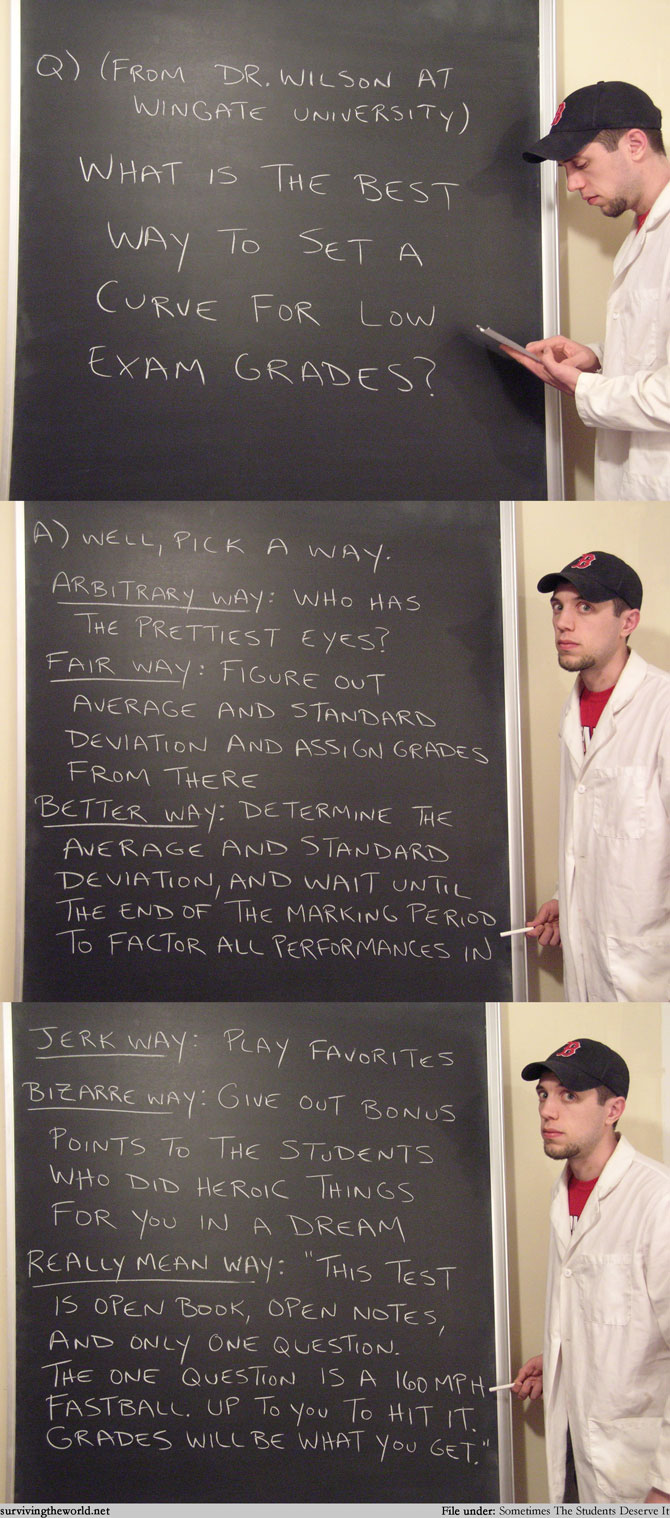 Q) (FROM DR. WILSON AT
WINGATE UNIVERSITY)
WHAT IS THE BEST
WAY TO SET A
CURVE FOR LOW
EXAM GRADES?
B
A) WELL, PICK A WAY.
ARBITRARY WAY: WHO HAS
THE PRETTIEST EYES?
FAIR WAY: FIGURE OUT
AVERAGE AND STANDARD
DEVIATION AND ASSIGN GRADES
FROM THERE
BETTER WAY: DETERMINE THE
AVERAGE AND STANDARD
DEVIATION, AND WAIT UNTIL
THE END OF THE MARKING PERIOD
TO FACTOR ALL PERFORMANCES IN
B
JERK WAY: PLAY FAVORITES
BIZARRE WAY: GIVE OUT BONUS
POINTS TO THE STUDENTS
WHO DID HEROIC THINGS
FOR YOU IN A DREAM
REALLY MEAN WAY: "THIS TEST
IS OPEN BOOK, OPEN NOTES,
AND ONLY ONE QUESTION.
THE ONE QUESTION IS A 160 MPH
FASTBALL. UP TO YOU TO HIT IT.
GRADES WILL BE WHAT YOU GET."
B
survivingtheworld.net
File under: Sometimes The Students Deserve It